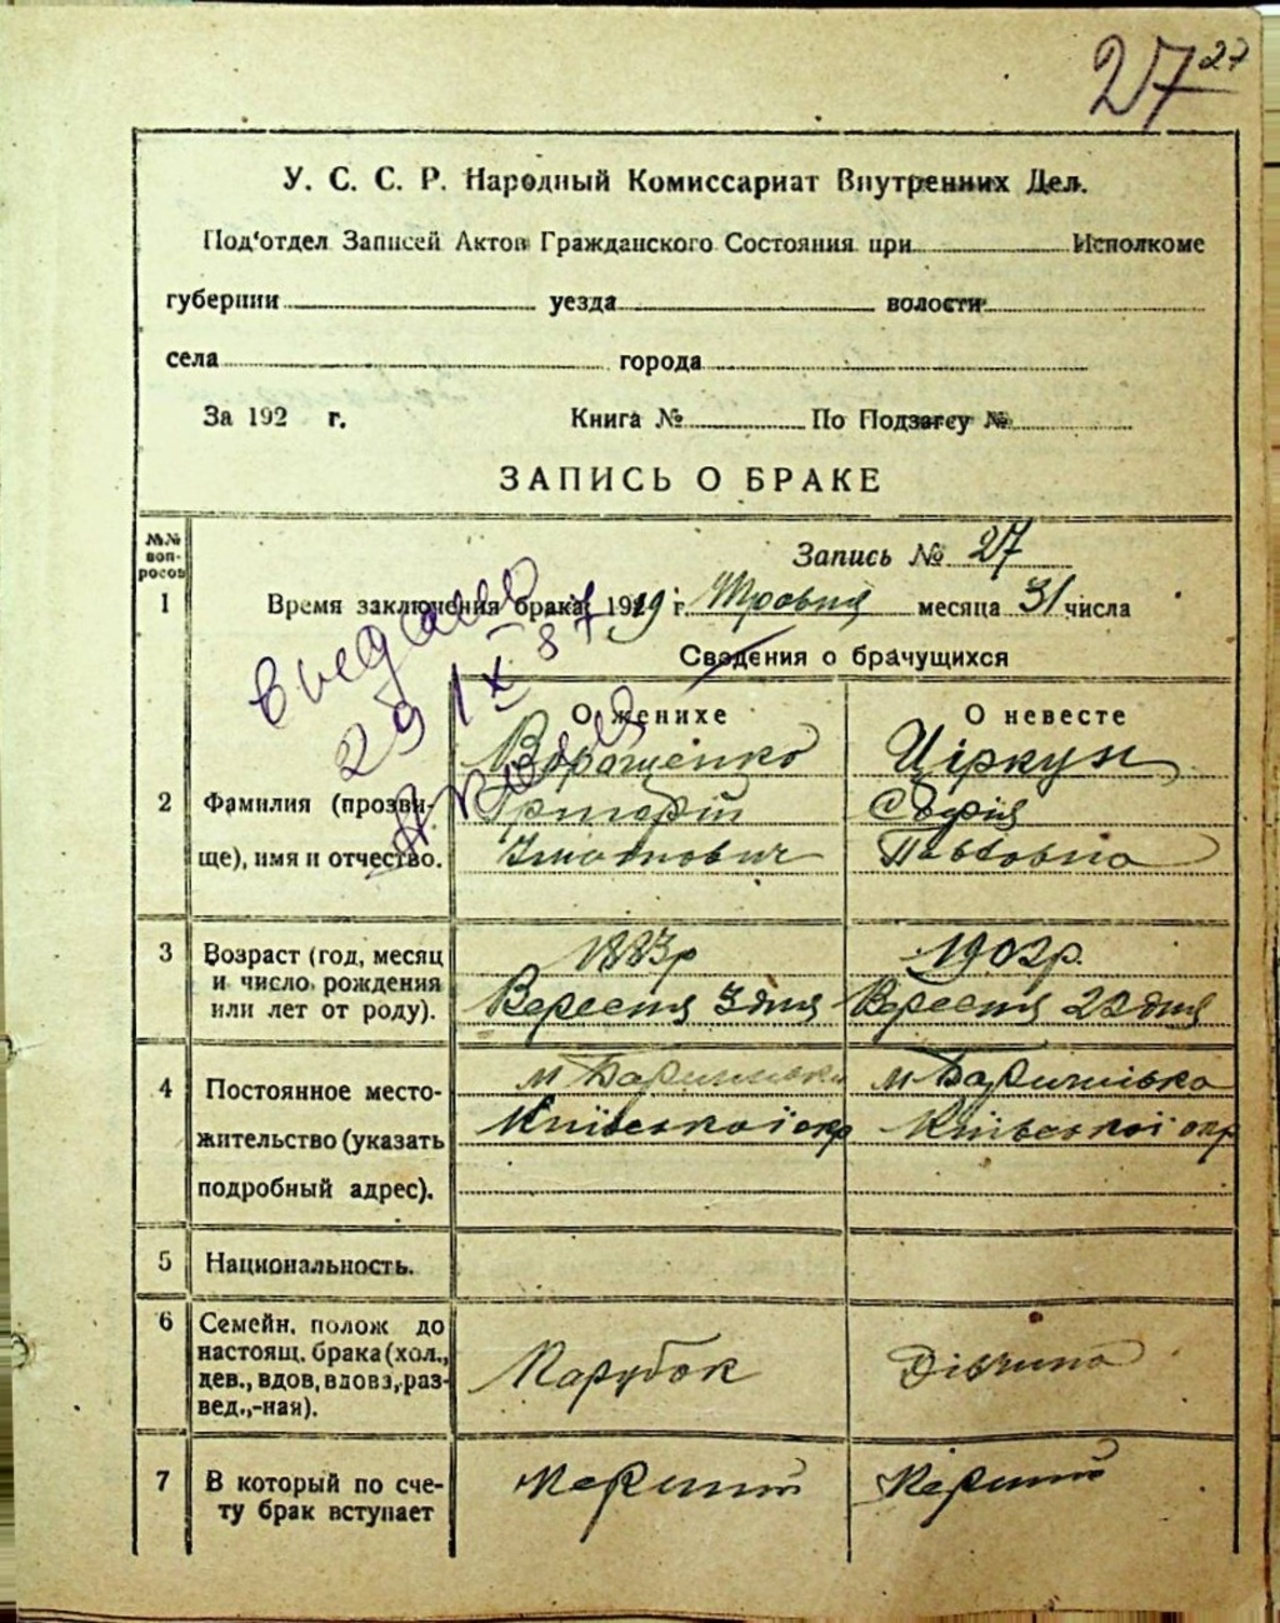 27 27
У. С. С. Р. Народный Комиссариат Внутренних Дел.
Под‘отдел Записей Актов Гражданского Состояния при Исполкоме
губернии уезда волости
села города
За 192 г. Книга № По Подзагсу №
ЗАПИСЬ О БРАКЕ
№№ воп-росов
Запись № 27
1 Время заключения брака 1919 г. Травня месяца 31 числа
29 IX 87
Сведения о брачущихся
О женихе О невесте
Ворошенко Ціркун
2 Фамилия (прозви- Григорій Софія
ще), имя и отчество. Павловна
3 Возраст (год, месяц 1883р 1902р.
и число рождения Вересня 3 дня Вересня 22 дня
или лет от роду).
4 Постоянное место- м Баришівка м Баришівка
жительство (указать Київської окр Київської окр
подробный адрес).
5 Национальность.
6 Семейн. полож до
настоящ. брака (хол., Парубок Дівчина
дев., вдов, вдова, раз-
вед.,-ная).
7 В который по сче- Перший Перший
ту брак вступает